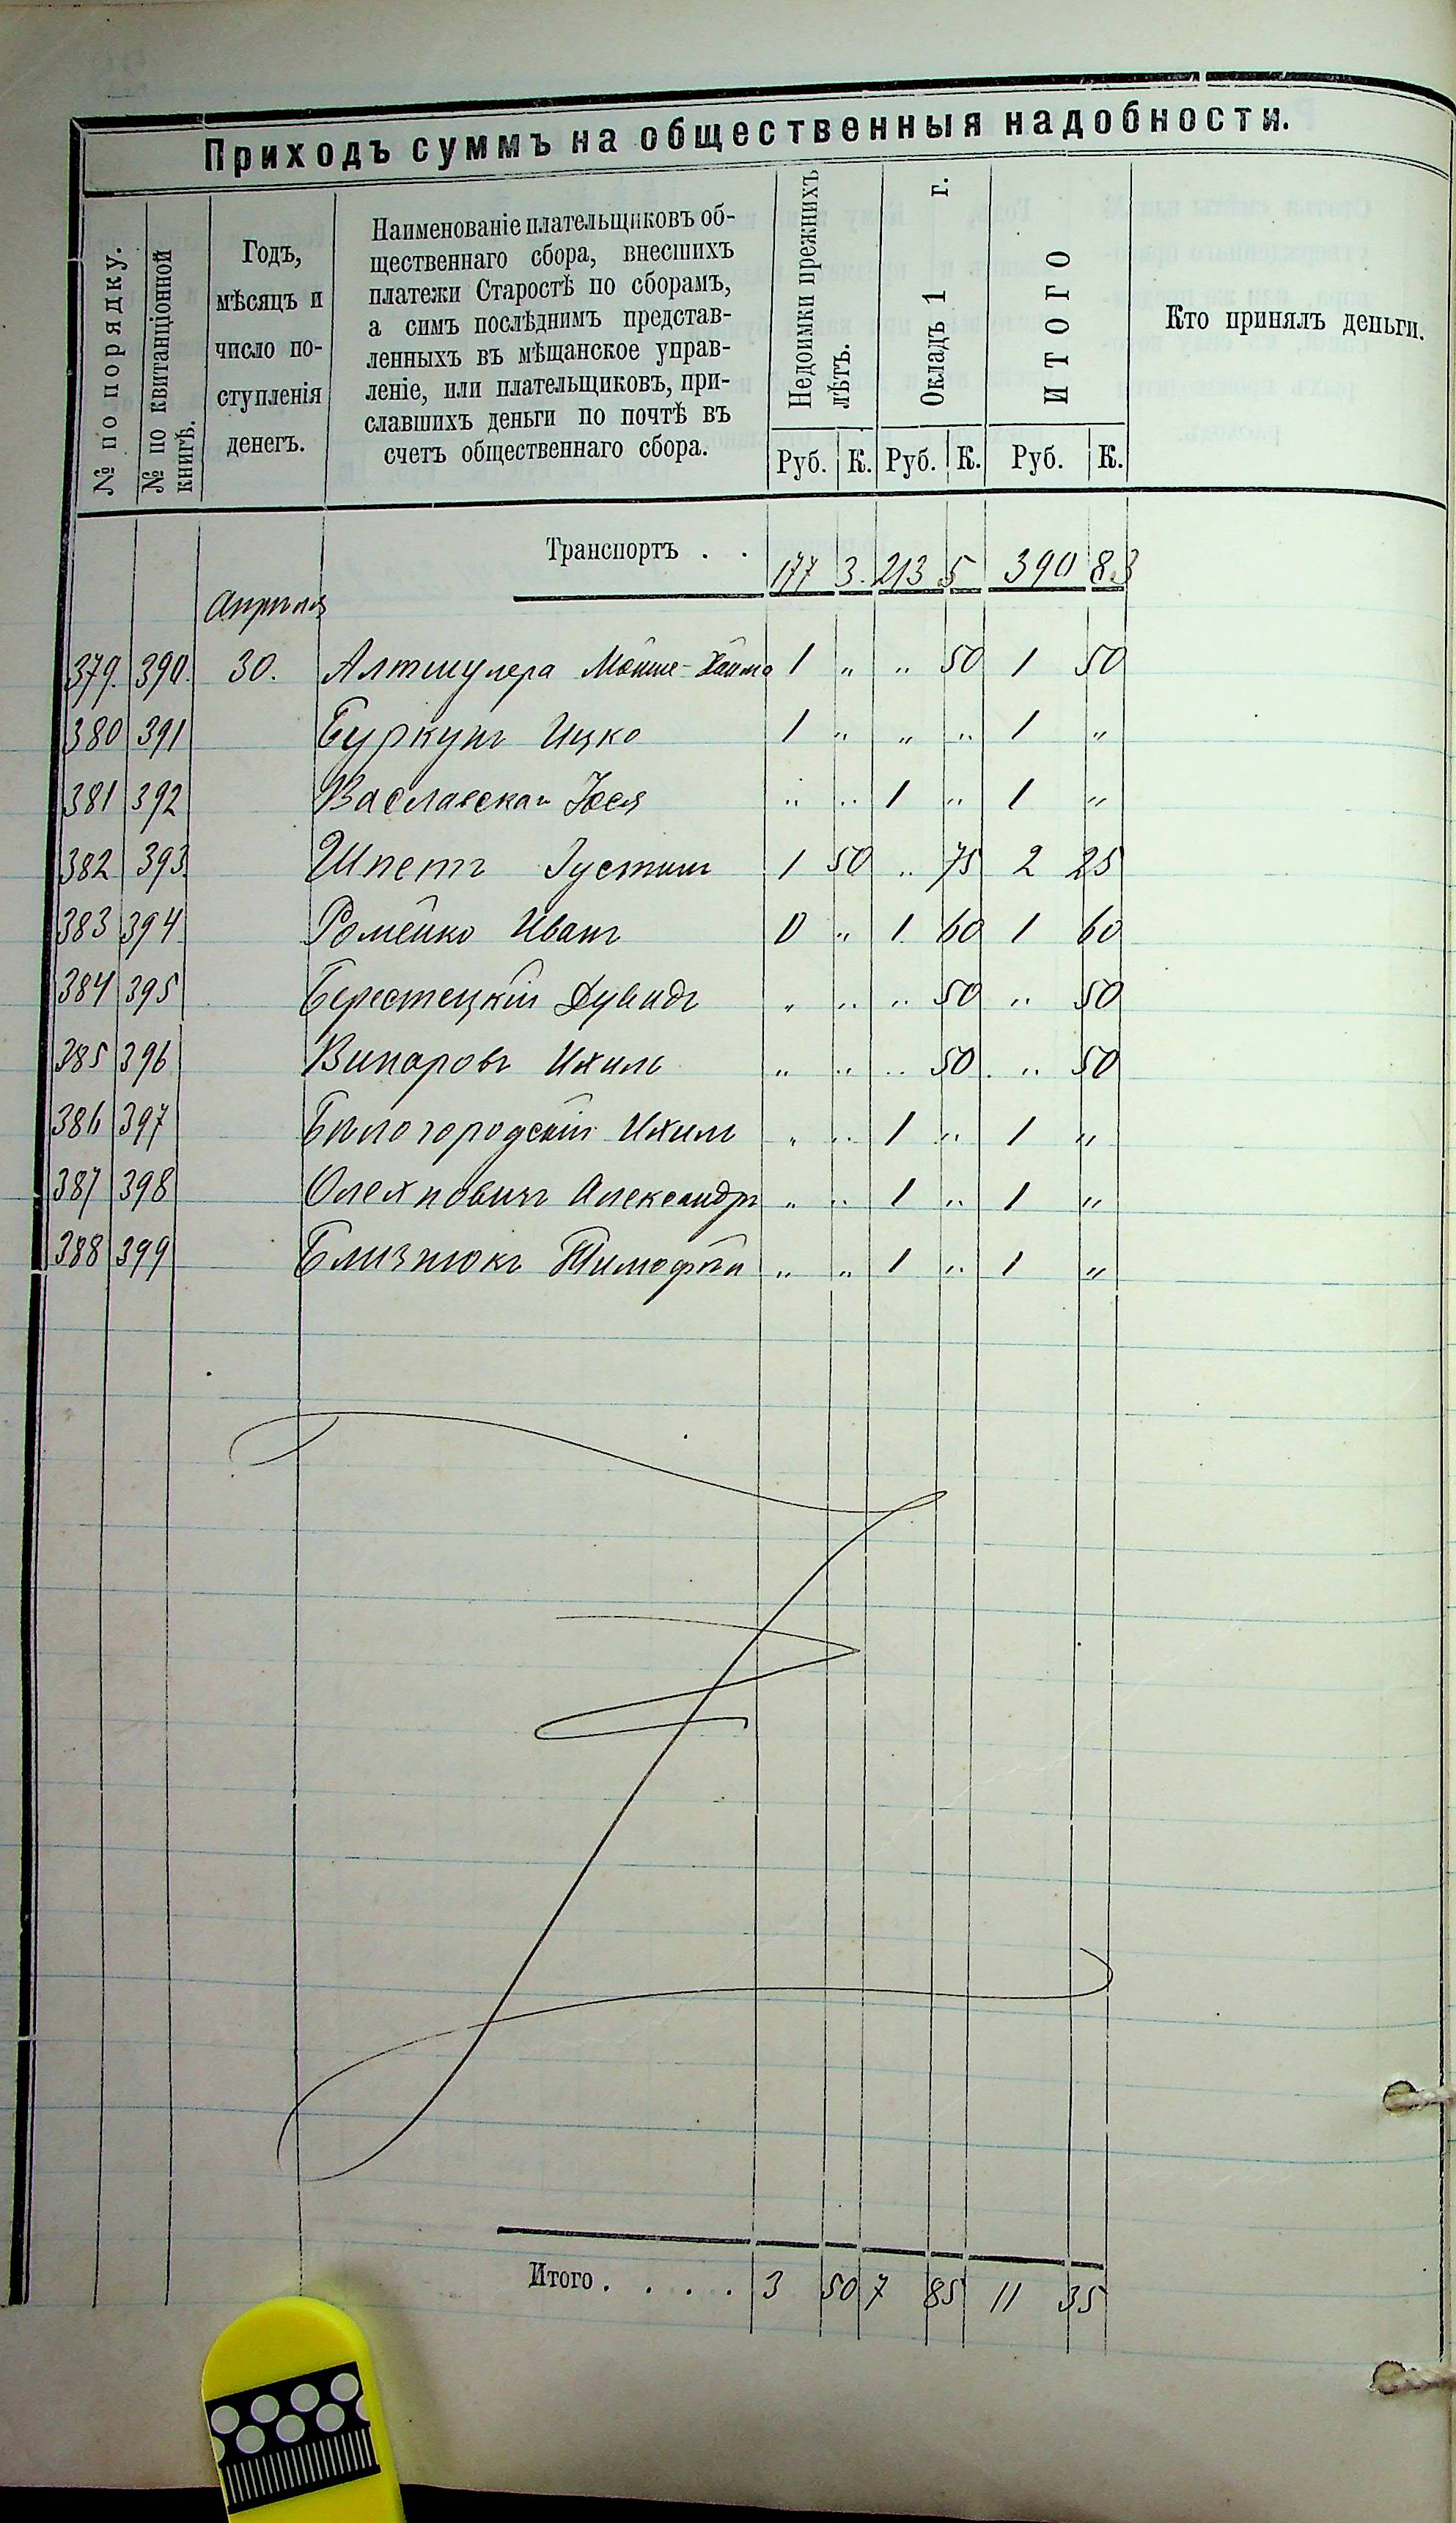 Приходъ суммъ на общественныя надобности.
№ по порядку.
№ по квитанціонной
книгѣ.
Годъ,
мѣсяцъ и
число по-
ступленія
денегъ.
Наименованіе плательщиковъ об-
щественнаго сбора, внесшихъ
платежи Старостѣ по сборамъ,
а симъ послѣднимъ представ-
ленныхъ въ мѣщанское управ-
леніе, или плательщиковъ, при-
славшихъ деньги по почтѣ въ
счетъ общественнаго сбора.
Недоимки прежнихъ
лѣтъ.
Окладъ 1 г.
ИТОГО
Кто принялъ деньги.
Руб. К. Руб. К. Руб. К.
Транспортъ . . 177 3. 213 5 390 8.3
Апрѣля
379. 390. 30. Алтшулера Мойше-Хаима 1 „ „ 50 1 50
380 391 Буркунъ Ицко 1 „ „ „ 1 „
381 392 Заславская Хося „ „ 1 „ 1 „
382 393. Шпетъ Густинъ 1 50 „ 75 2 25
383 394 Роменко Иванъ 0 „ 1. 60 1 60
384 395 Берестецкій Дувидъ „ „ „ 50 „ 50
385 396 Винаровъ Ихиль „ „ „ 50 „ 50
386 397 Бѣлогородскій Ихиль „ „ 1 „ 1 „
387 398 Олехновичъ Александръ „ „ 1 „ 1 „
388 399 Близнюкъ Тимофѣй „ „ 1 „ 1 „
Итого . . . . 3 50 7 85 11 35